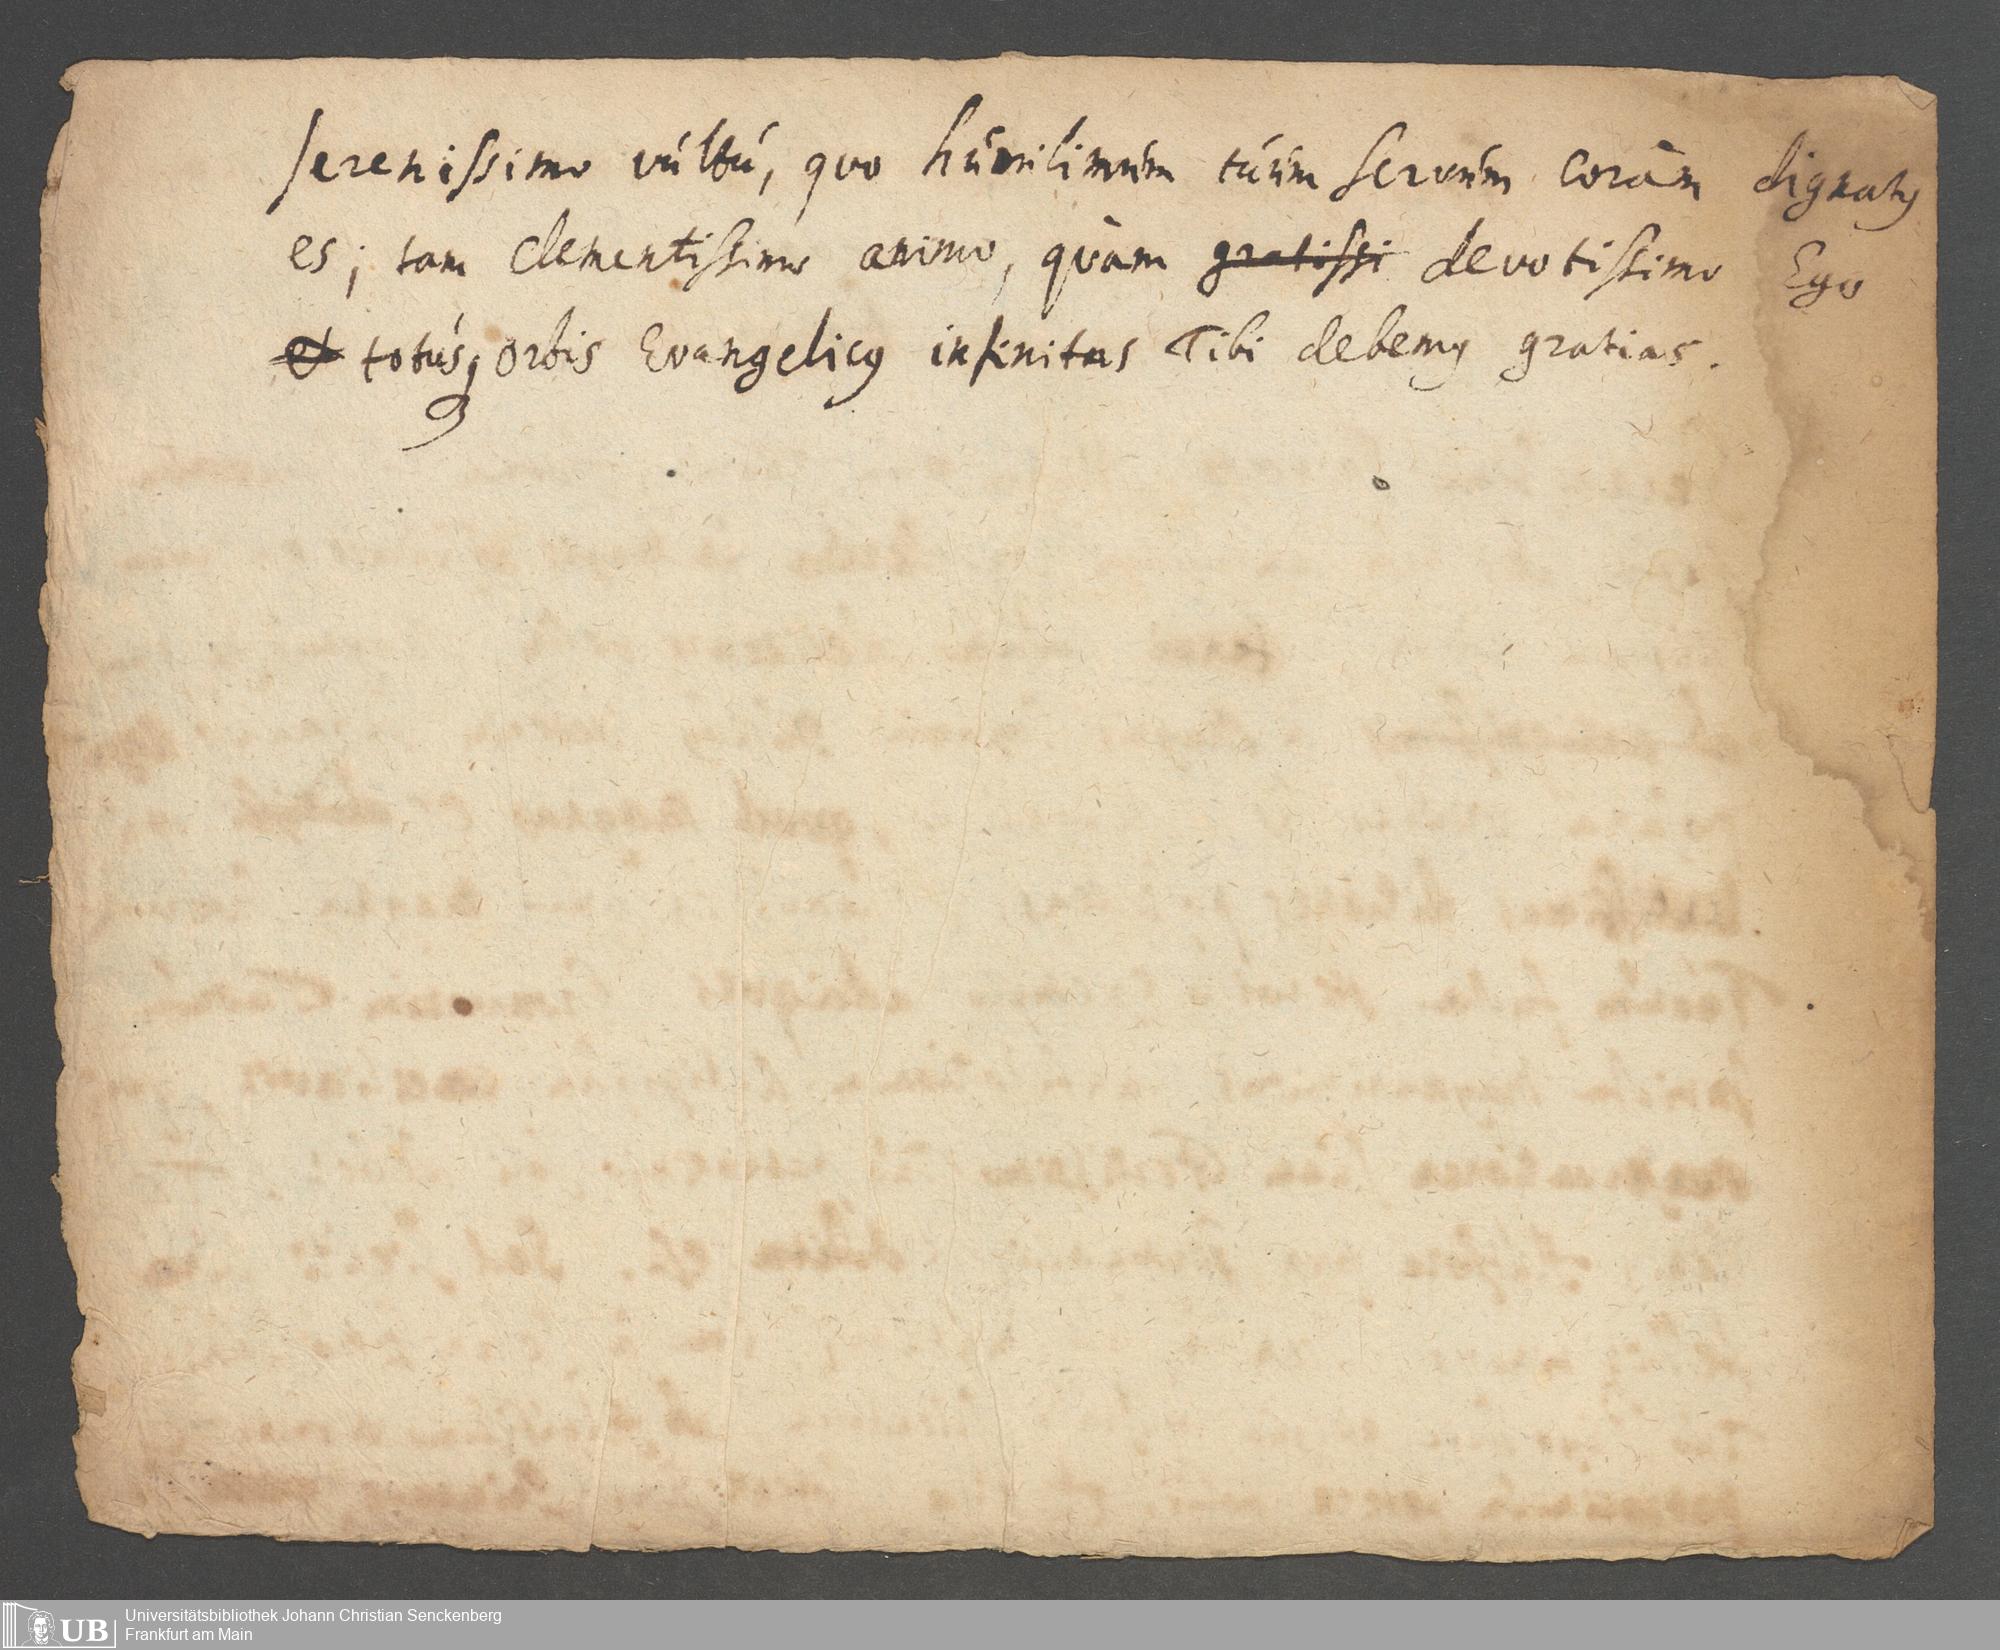 serenissimo vúltú, quo húmilimúm túúm servúm coràm dignatꝰ
es; tam clementissimo animo, quàm gratissi devotissimo Ego
et totúsꝗ orbis Evangelicꝰ infinitas Tibi debemꝰ gratias.
UB Universitätsbibliothek Johann Christian Senckenberg
Frankfurt am Main